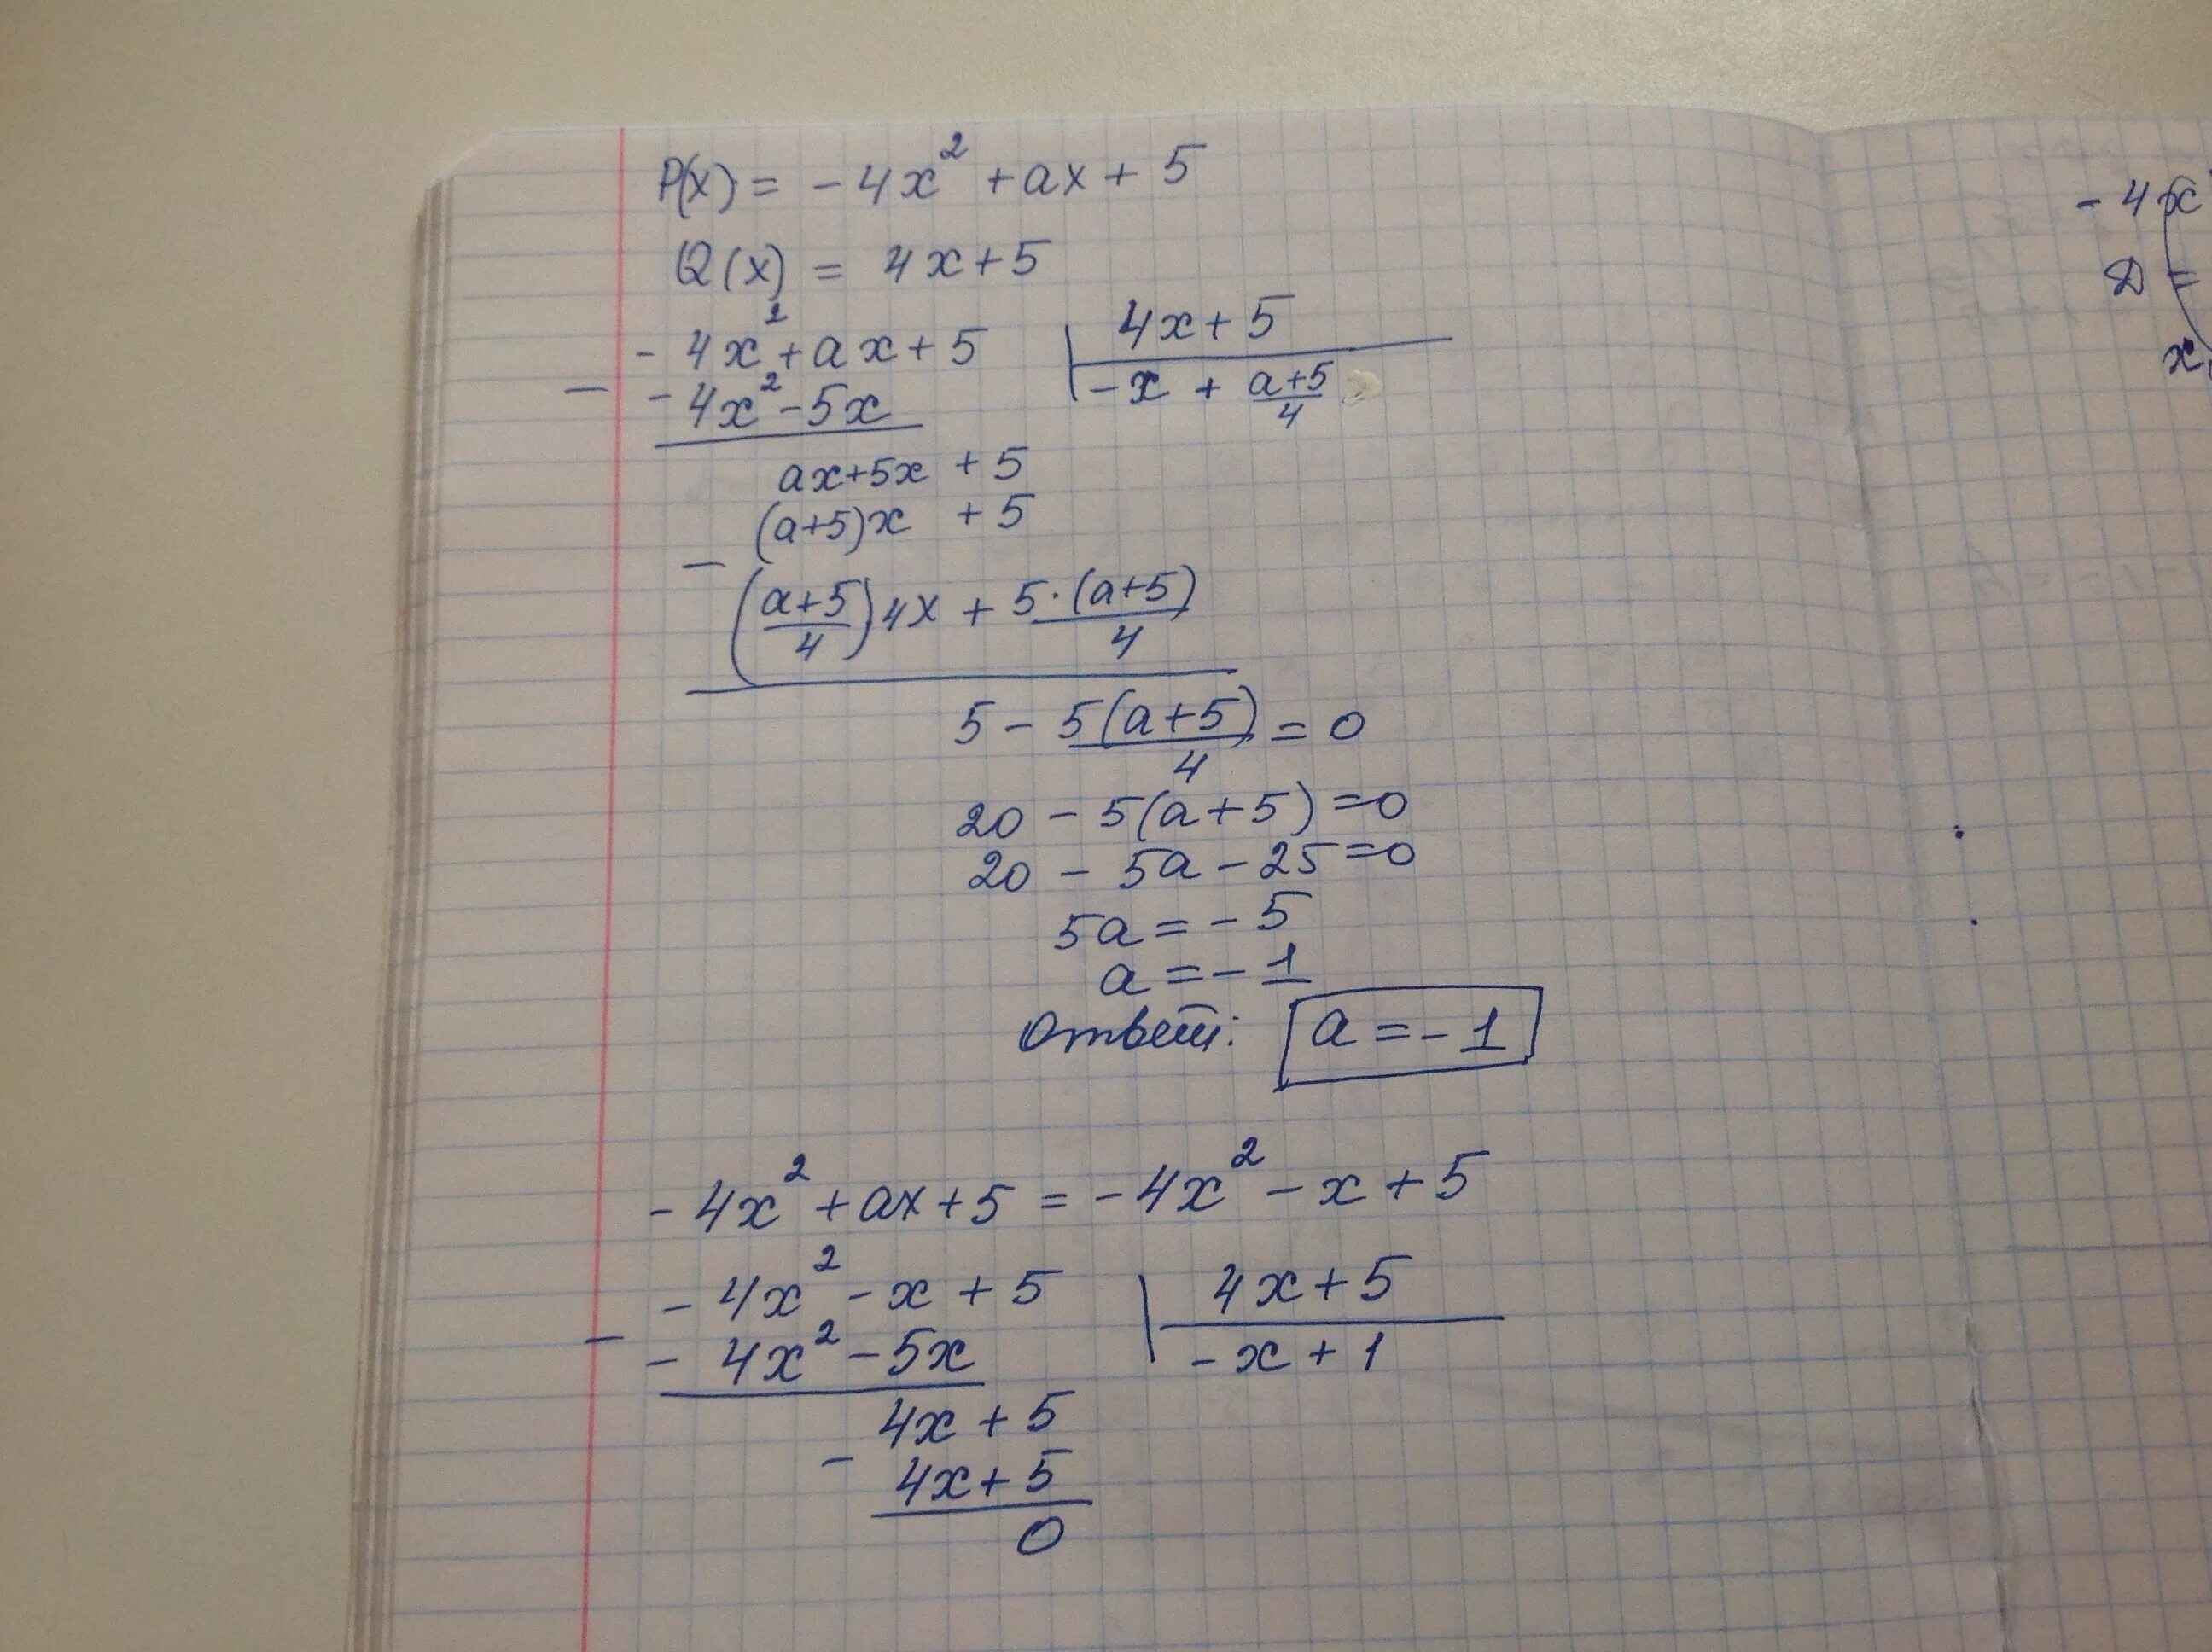 P(x) = - 4x² + ax + 5
Q(x) = 4x + 5
- 4x² + ax + 5 | 4x + 5
- - 4x² - 5x | - x + (a+5)/4
ax + 5x + 5
(a+5)x + 5
- ((a+5)/4) 4x + 5·(a+5)/4
5 - 5(a+5)/4 = 0
20 - 5(a+5) = 0
20 - 5a - 25 = 0
5a = - 5
a = - 1
Ответ: a = - 1
- 4x² + ax + 5 = - 4x² - x + 5
- 4x² - x + 5 | 4x + 5
- - 4x² - 5x | - x + 1
4x + 5
- 4x + 5
0
- 4x
D =
x